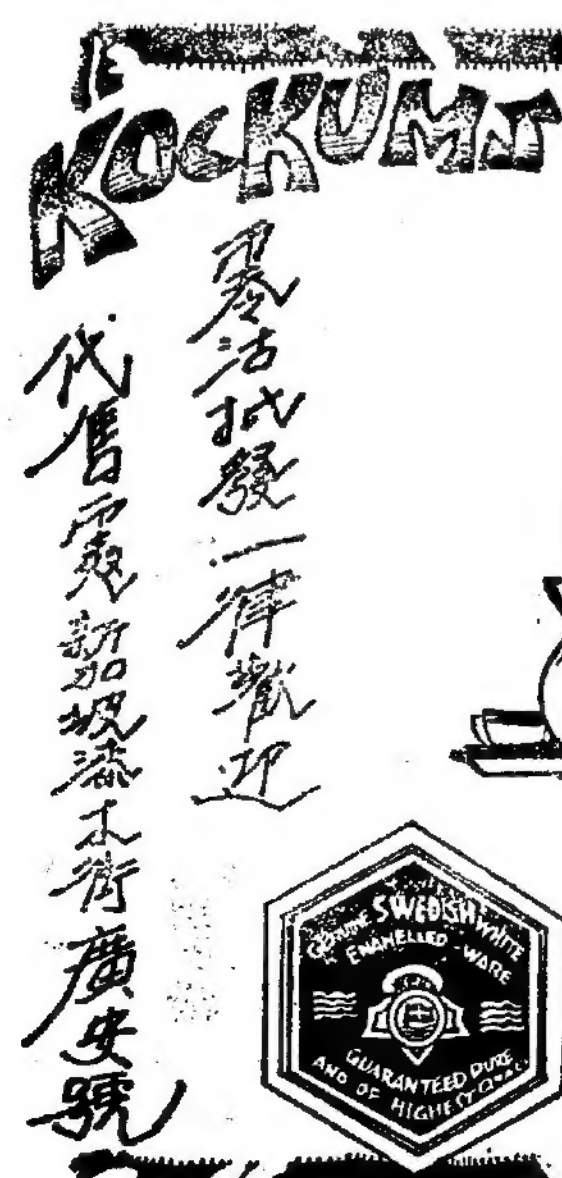 KOCKUMS
零沽批發一律歡迎
代售處新加坡漆木街廣安號
GENUINE SWEDISH WHITE
ENAMELLED WARE
GUARANTEED PURE
AND OF HIGHEST